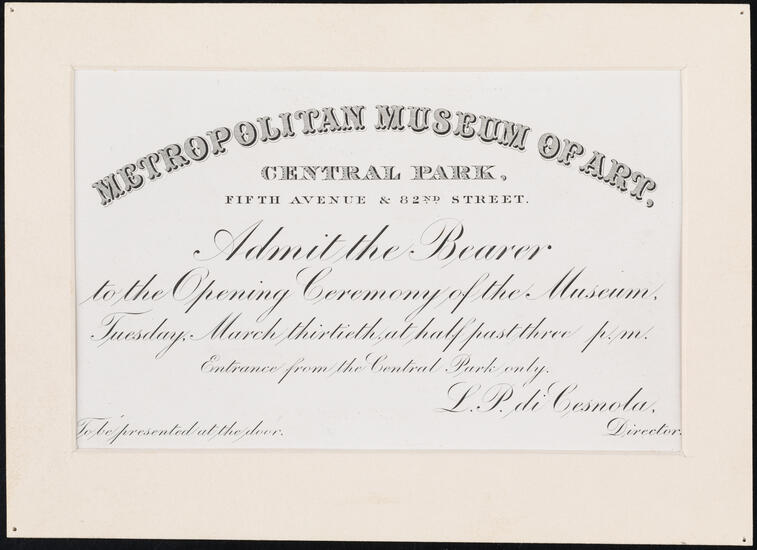 METROPOLITAN MUSEUM OF ART,
CENTRAL PARK,
FIFTH AVENUE & 82ND STREET.
Admit the Bearer
to the Opening Ceremony of the Museum,
Tuesday, March thirtieth, at half past three p.m.
Entrance from the Central Park only.
L. P. di Cesnola,
To be presented at the door.
Director.